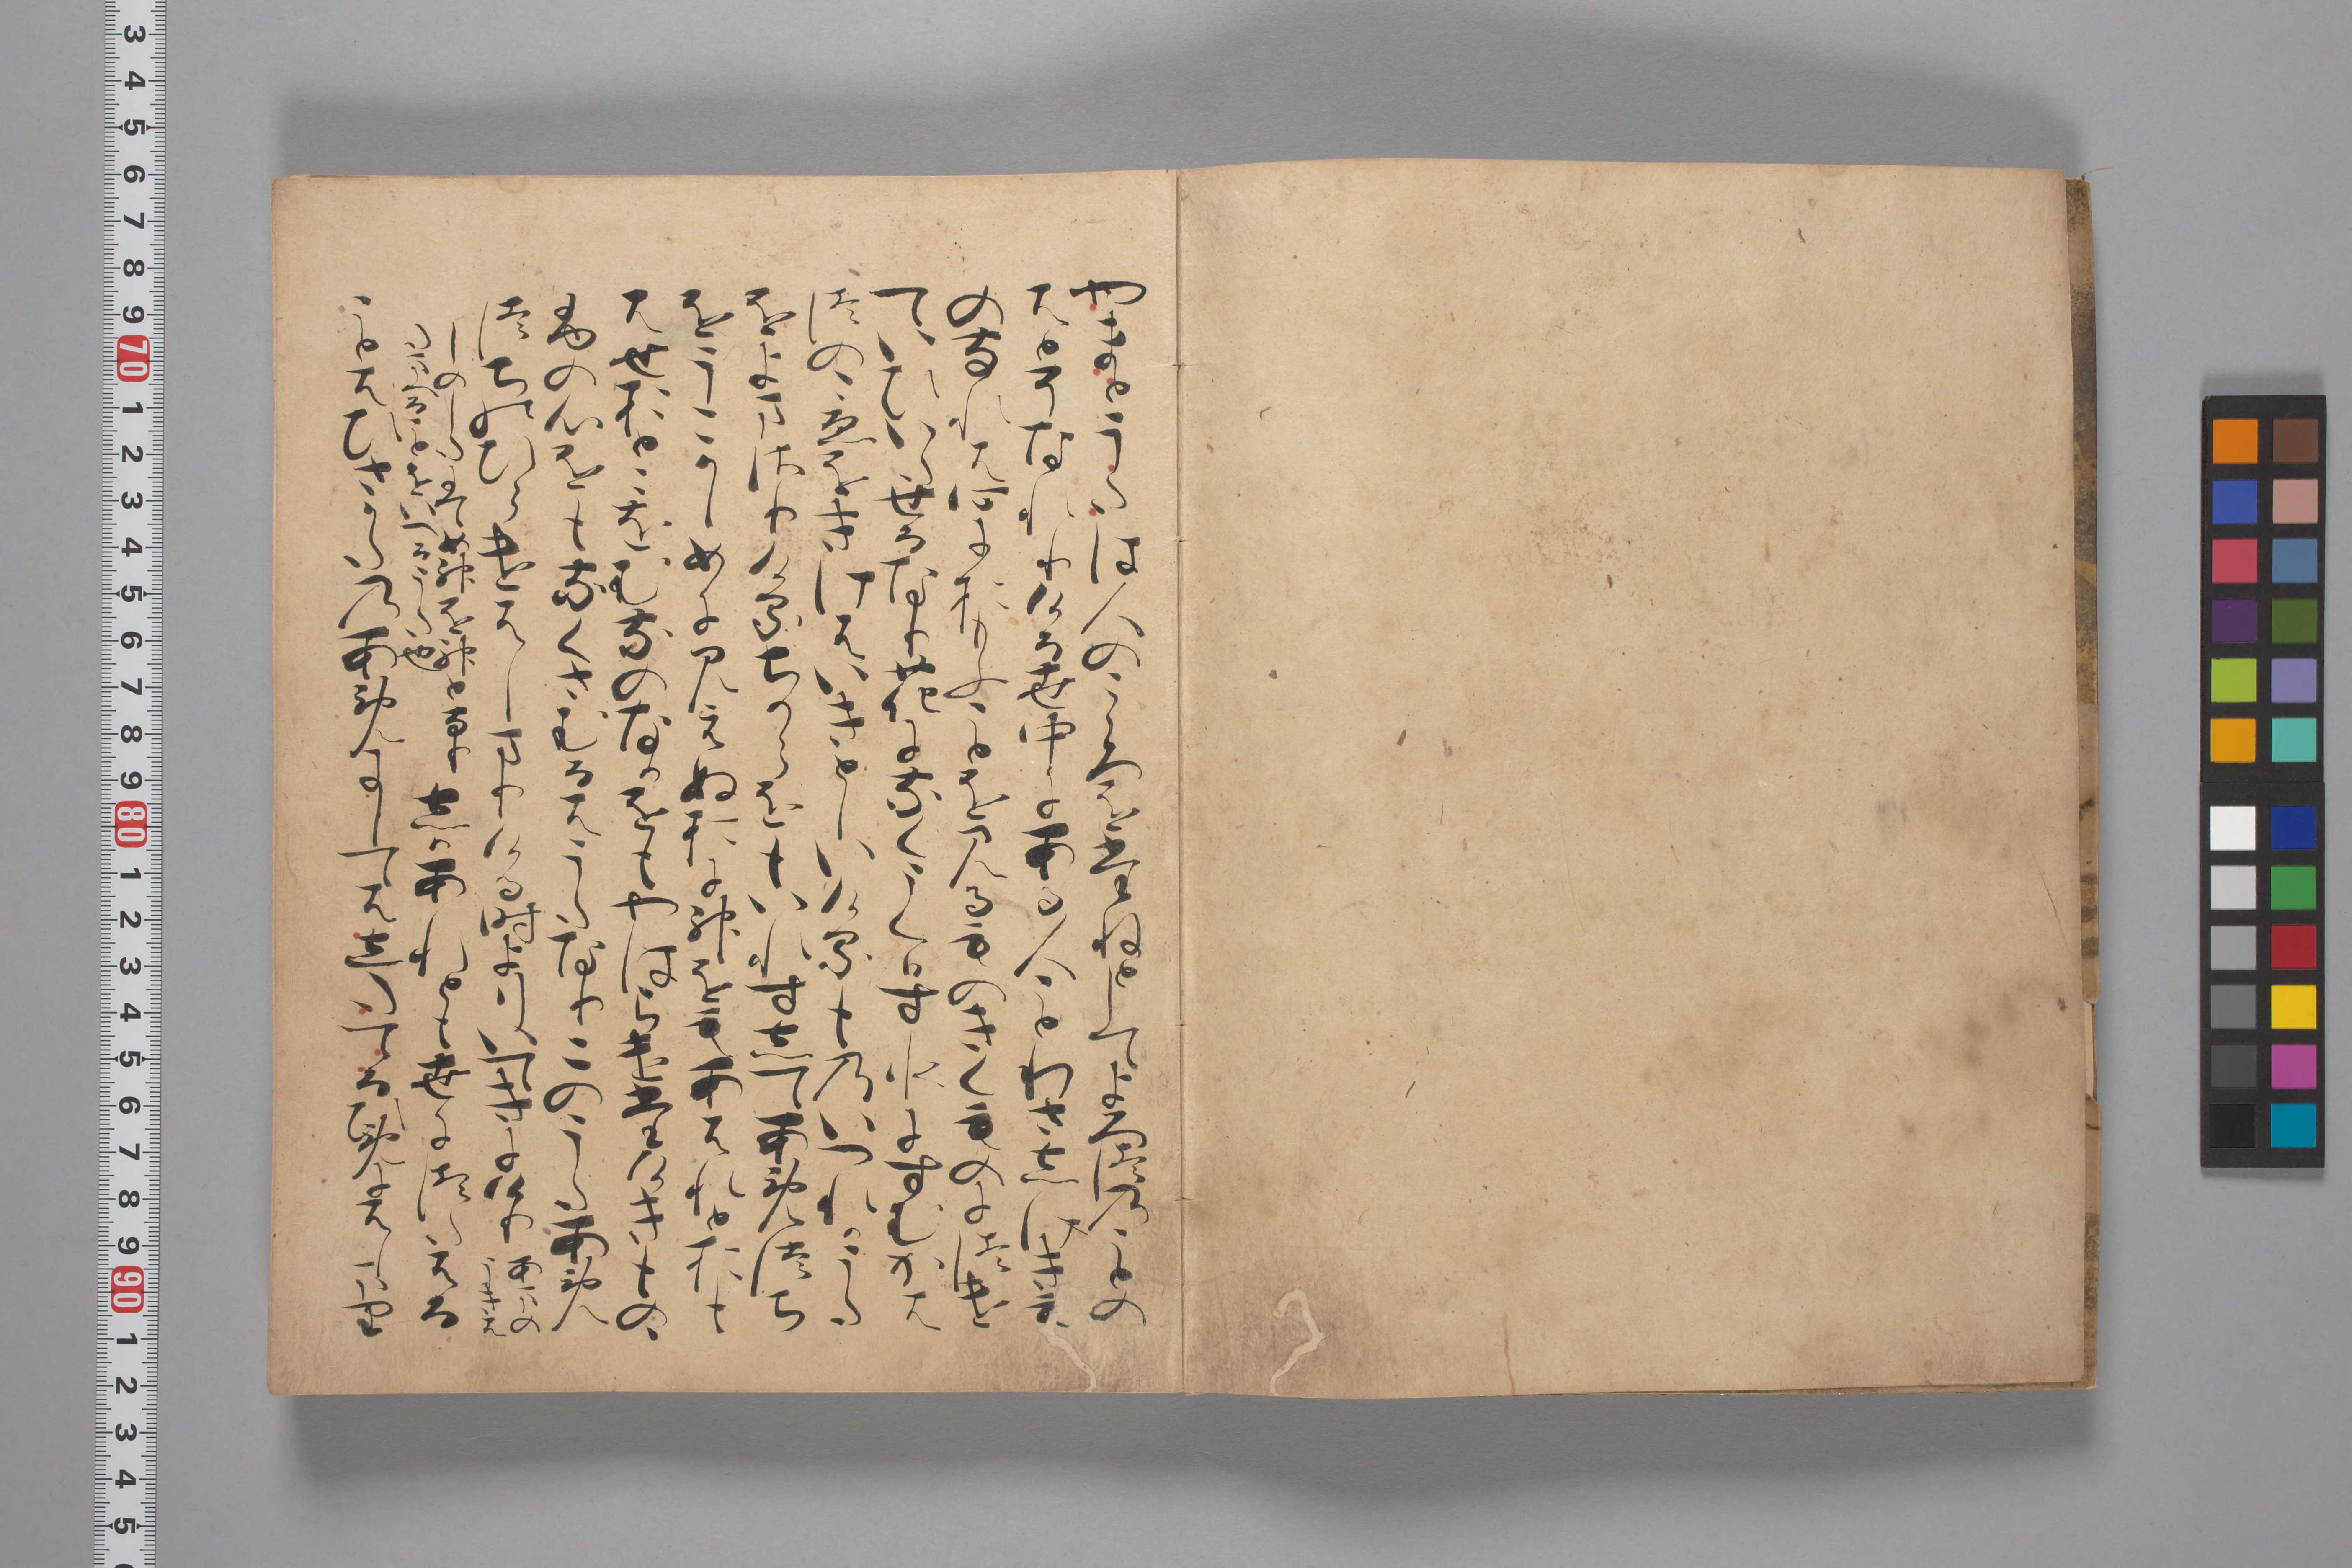 やまとうたは人のこゝろをたねとしてよろつのことの
はとそなれりける世中にある人ことわさしけき
ものなれは心におもふことを見るものきくものにつけ
ていひいたせるなり花になくうくひす水にすむかは
つのこゑをきけはいきとしいけるものいつれかう
たをよまさりけるちからをもいれすしてあめつち
をうこかしめに見えぬおに神をもあはれとおも
はせおとこ女のなかをもやはらけたけきものゝ
ふの心をもなくさむるはうたなりこのうたあめ
つちのひらけはしまりける時よりいてきにけり
あまの
うきは
しのしたにてめ神を神となりたまへる
ことをいへるうた也
しかあれとも世につたはる
ことはひさかたのあめにしてはしたてるひめに